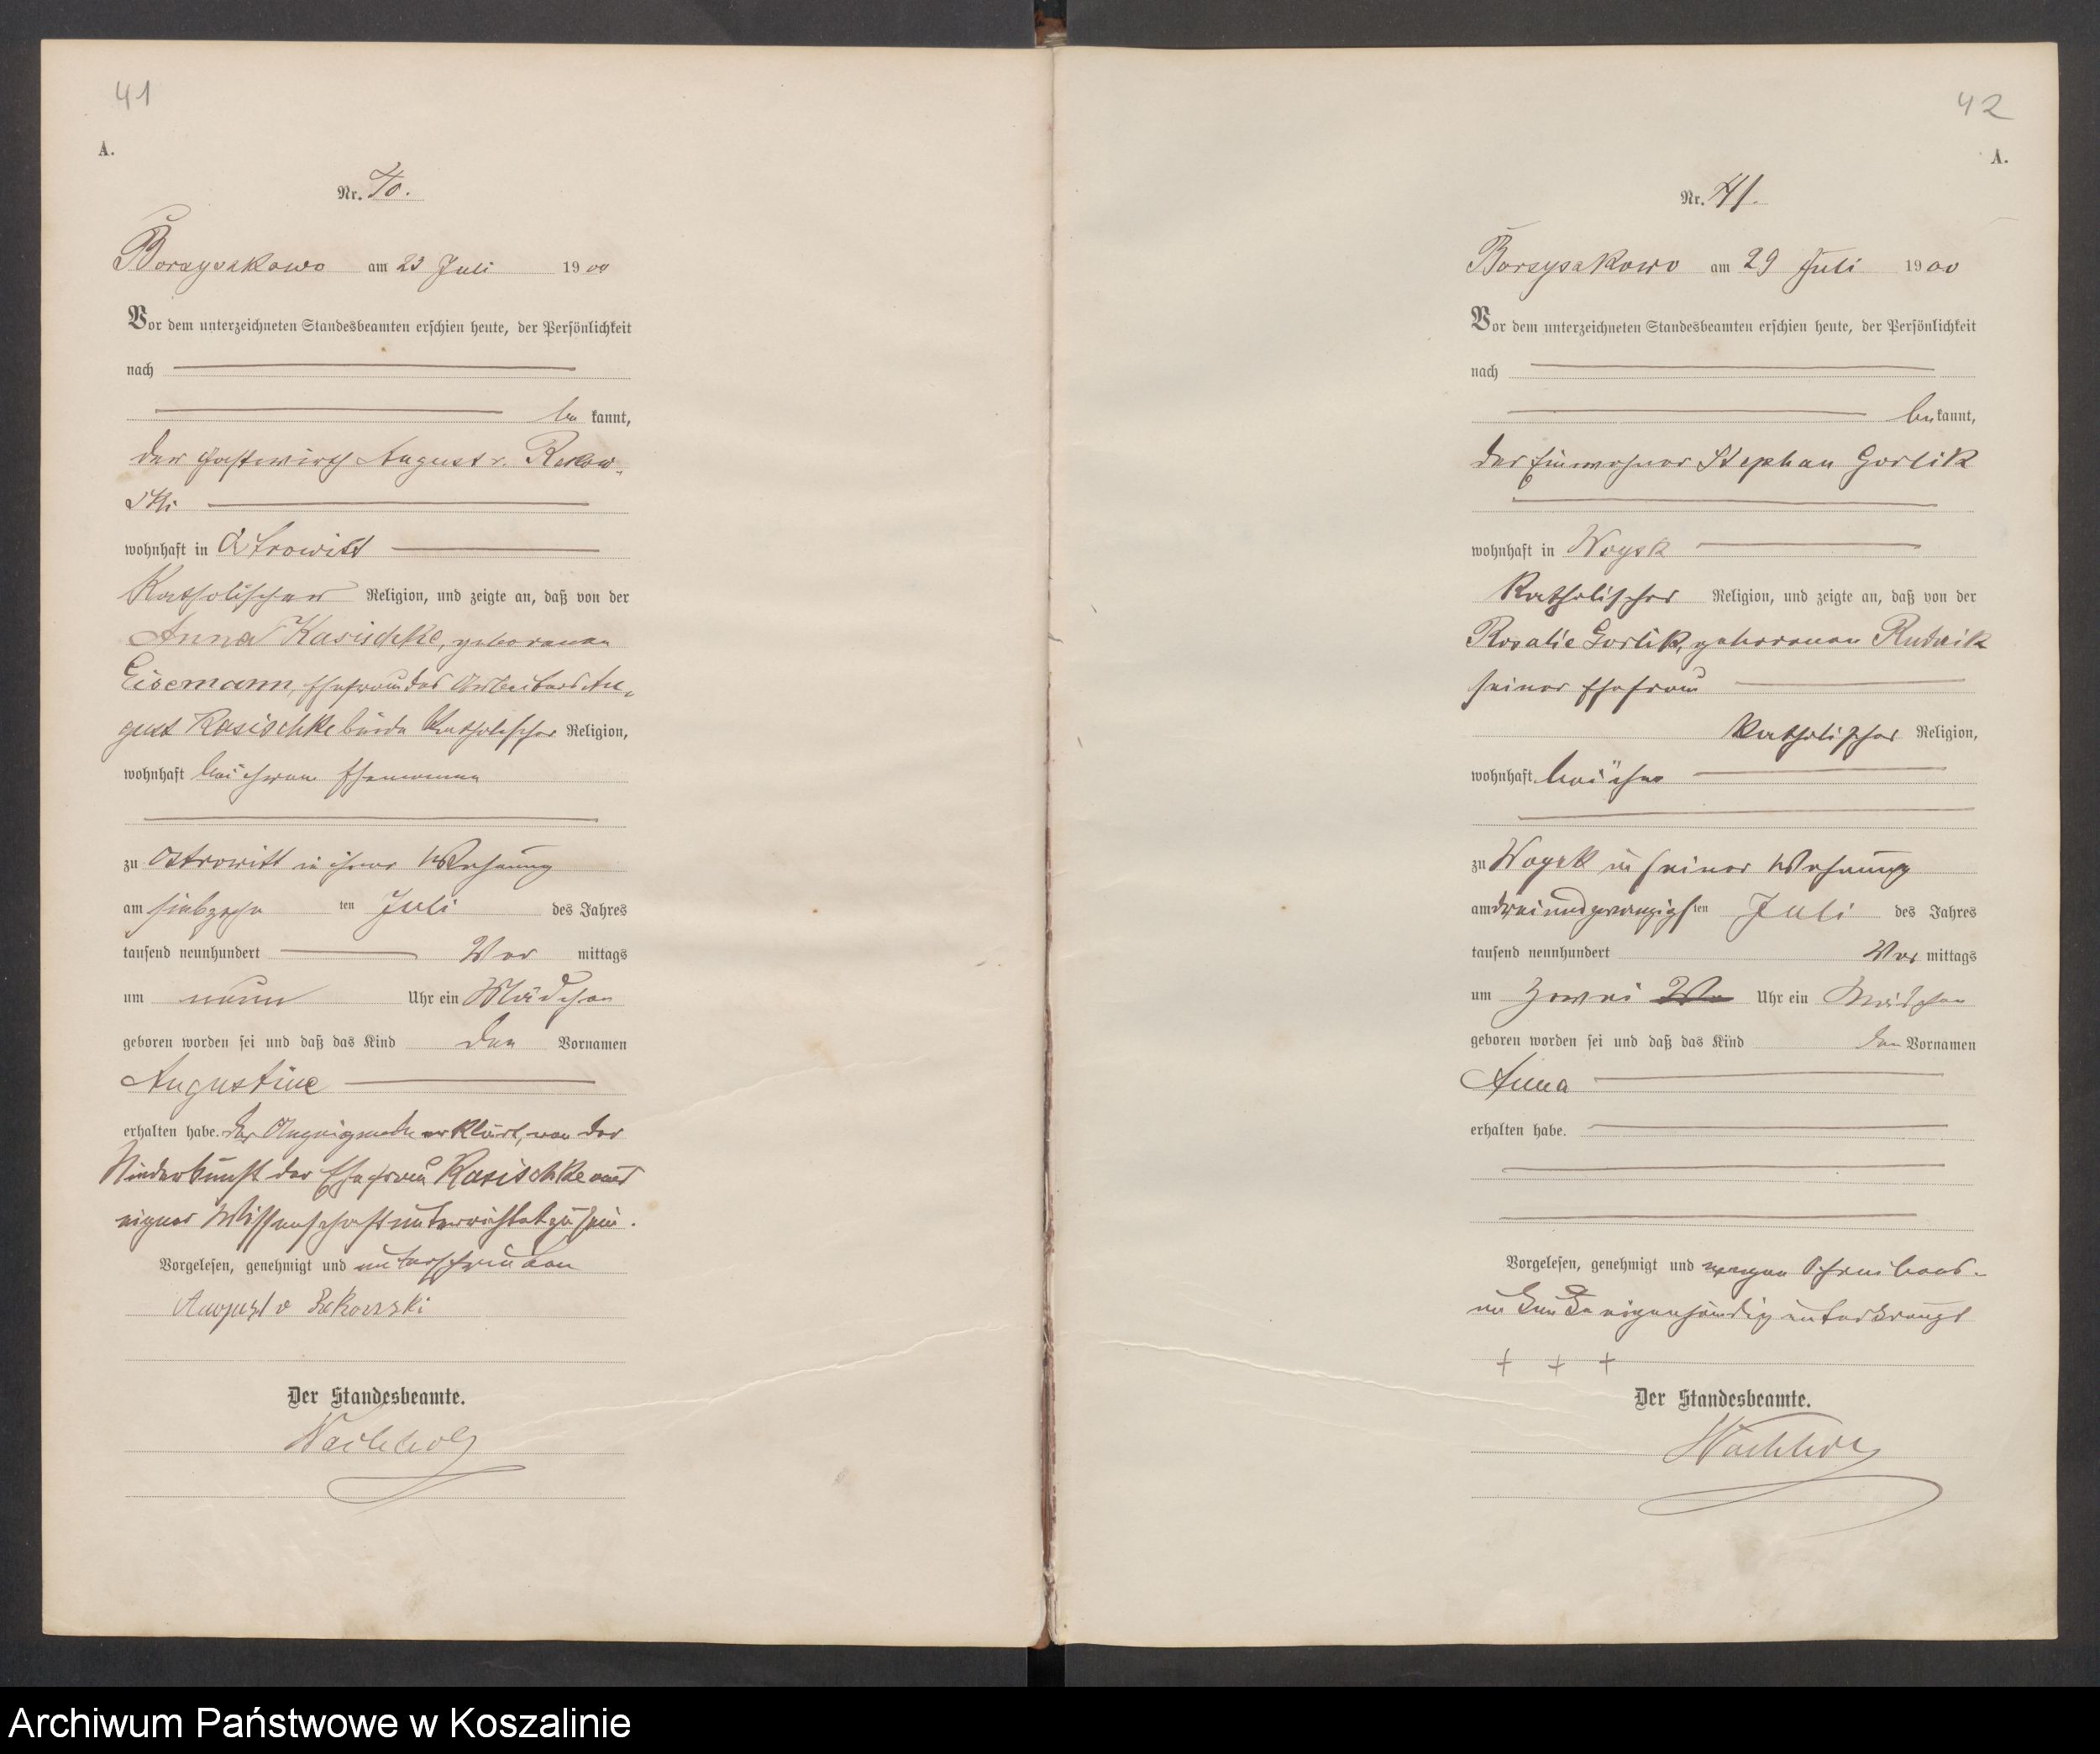 41
A.
Nr. 40.
Borzyszkowo am 23 Juli 1900
Vor dem unterzeichneten Standesbeamten erschien heute, der Persönlichkeit
nach
be kannt,
der Gastwirth August v. Rekow-
ski
wohnhaft in Ostrowitt
Katholischer Religion, und zeigte an, daß von der
Anna Kasischke, geborenen
Eisemann, Ehefrau des Arbeiters Au-
gust Kasischke beide katholischer Religion,
wohnhaft bei ihrem Ehemanne
zu Ostrowitt in ihrer Wohnung
am siebzehn ten Juli des Jahres
tausend neunhundert Vor mittags
um neun Uhr ein Mädchen
geboren worden sei und daß das Kind den Vornamen
Augustine
erhalten habe. Der Anzeigende erklärt, von der
Niederkunft der Ehefrau Kasischke aus
eigner Wissenschaft unterrichtet zu sein.
Vorgelesen, genehmigt und unterschrieben
August v Rekowski
Der Standesbeamte.
Wachholz
42
A.
Nr. 41.
Borzyszkowo am 29 Juli 1900
Vor dem unterzeichneten Standesbeamten erschien heute, der Persönlichkeit
nach
be kannt,
der Einwohner Stephan Gorlik
wohnhaft in Woysk
Katholischer Religion, und zeigte an, daß von der
Rosalie Gorlik, geborenen Rudnik
seiner Ehefrau
Katholischer Religion,
wohnhaft bei ihm
zu Woysk in seiner Wohnung
am dreiundzwanzigsten Juli des Jahres
tausend neunhundert Vor mittags
um zwei Uhr ein Mädchen
geboren worden sei und daß das Kind den Vornamen
Anna
erhalten habe.
Vorgelesen, genehmigt und wegen Schreibens-
unkunde eigenhändig unterkreuzt
+ + +
Der Standesbeamte.
Wachholz
Archiwum Państwowe w Koszalinie